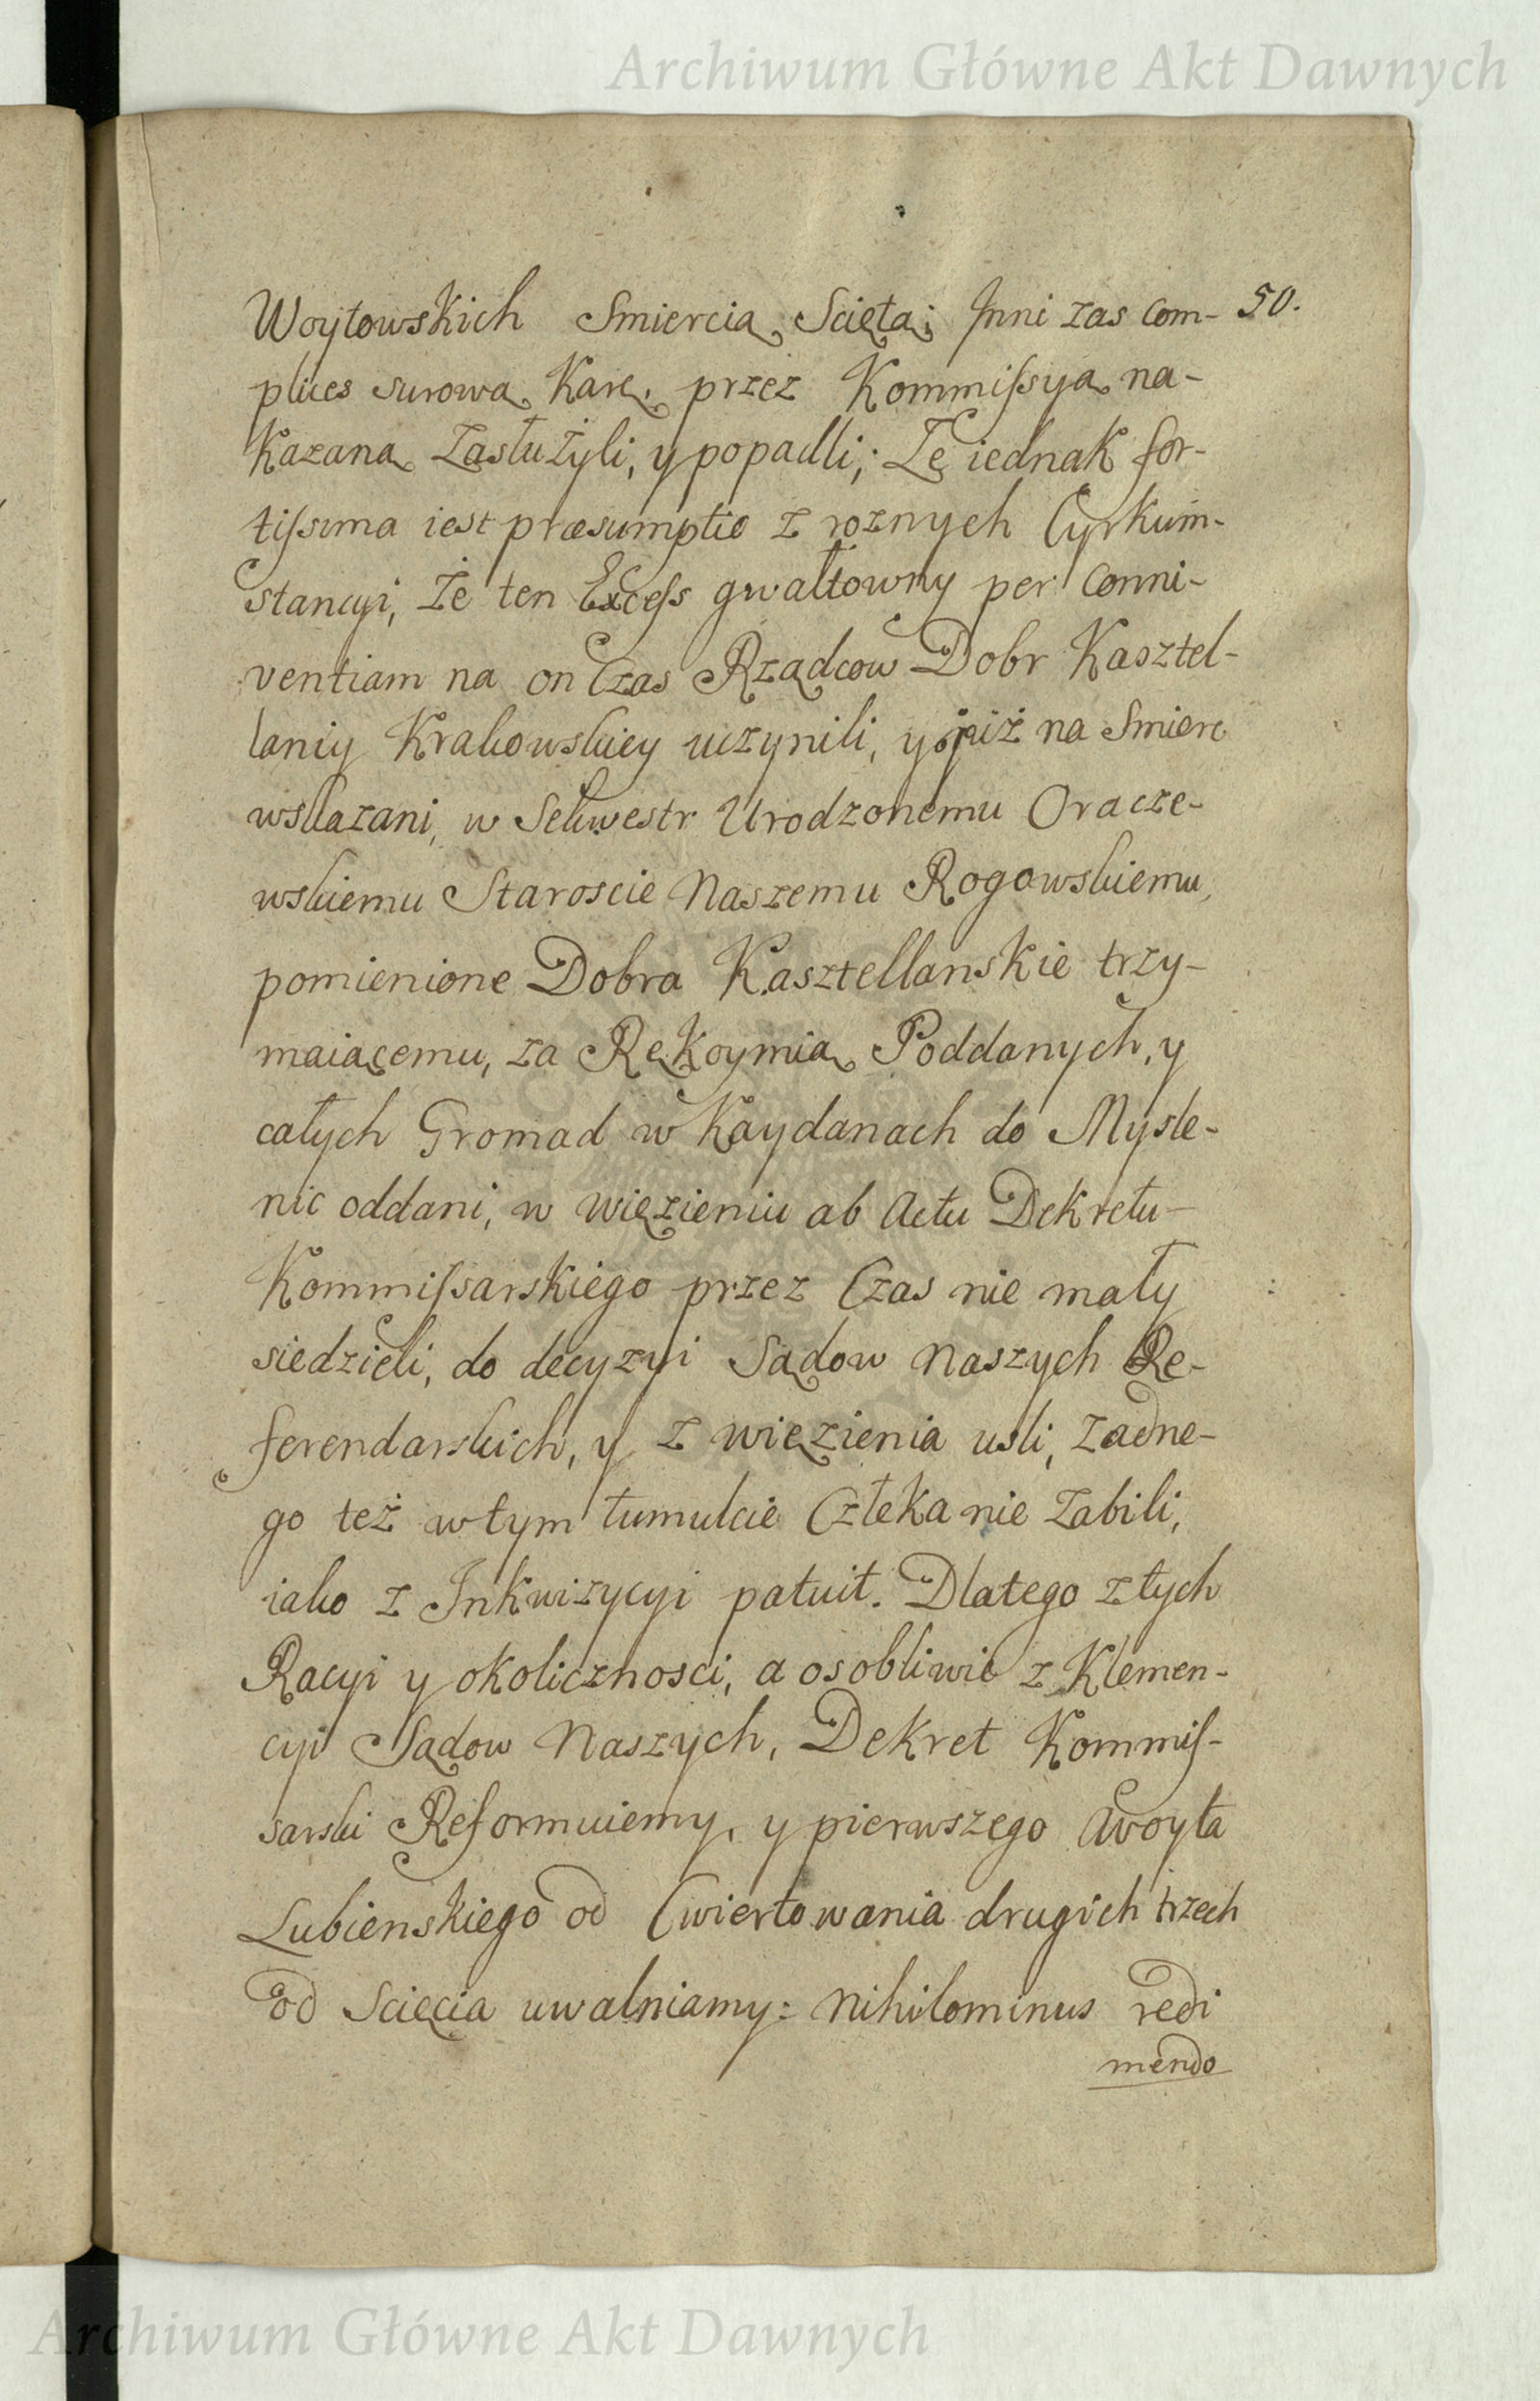 Archiwum Główne Akt Dawnych
Woytowskich Smiercią Sciętą; Inni zas com- 50.
plices surową Karę, przez Kommissyą na-
kazaną Zasłużyli, y popadli; Że iednak for-
tissima iest præsumptio z roznych Cyrkum-
stancyi, że ten Excess gwałtowny per conni-
ventiam na on Czas Rządcow Dobr Kasztel-
laniy Krakowskiey uczynili, y już na Smierc
wskazani, w Sekwestr Urodzonemu Oracze-
wskiemu Staroscie Naszemu Rogowskiemu,
pomienione Dobra Kasztellanskie trzy-
maiącemu, za Rękoymią Poddanych, y
całych Gromad w Kaydanach do Mysle-
nic oddani, w więzieniu ab Actu Dekretu
Kommissarskiego przez Czas nie mały
siedzieli, do decyzyi Sądow Naszych Re-
ferendarskich, y z więzienia usli, żadne-
go też w tym tumulcie Człeka nie Zabili,
iako z Inkwizycyi patuit. Dlatego z tych
Racyi y okolicznosci, a osobliwie z Klemen-
cyi Sądow Naszych, Dekret Kommis-
sarski Reformuiemy, y pierwszego Woyta
Lubienskiego od Cwiertowania drugich trzech
od Scięcia uwalniamy: Nihilominus redi
mendo
Archiwum Główne Akt Dawnych